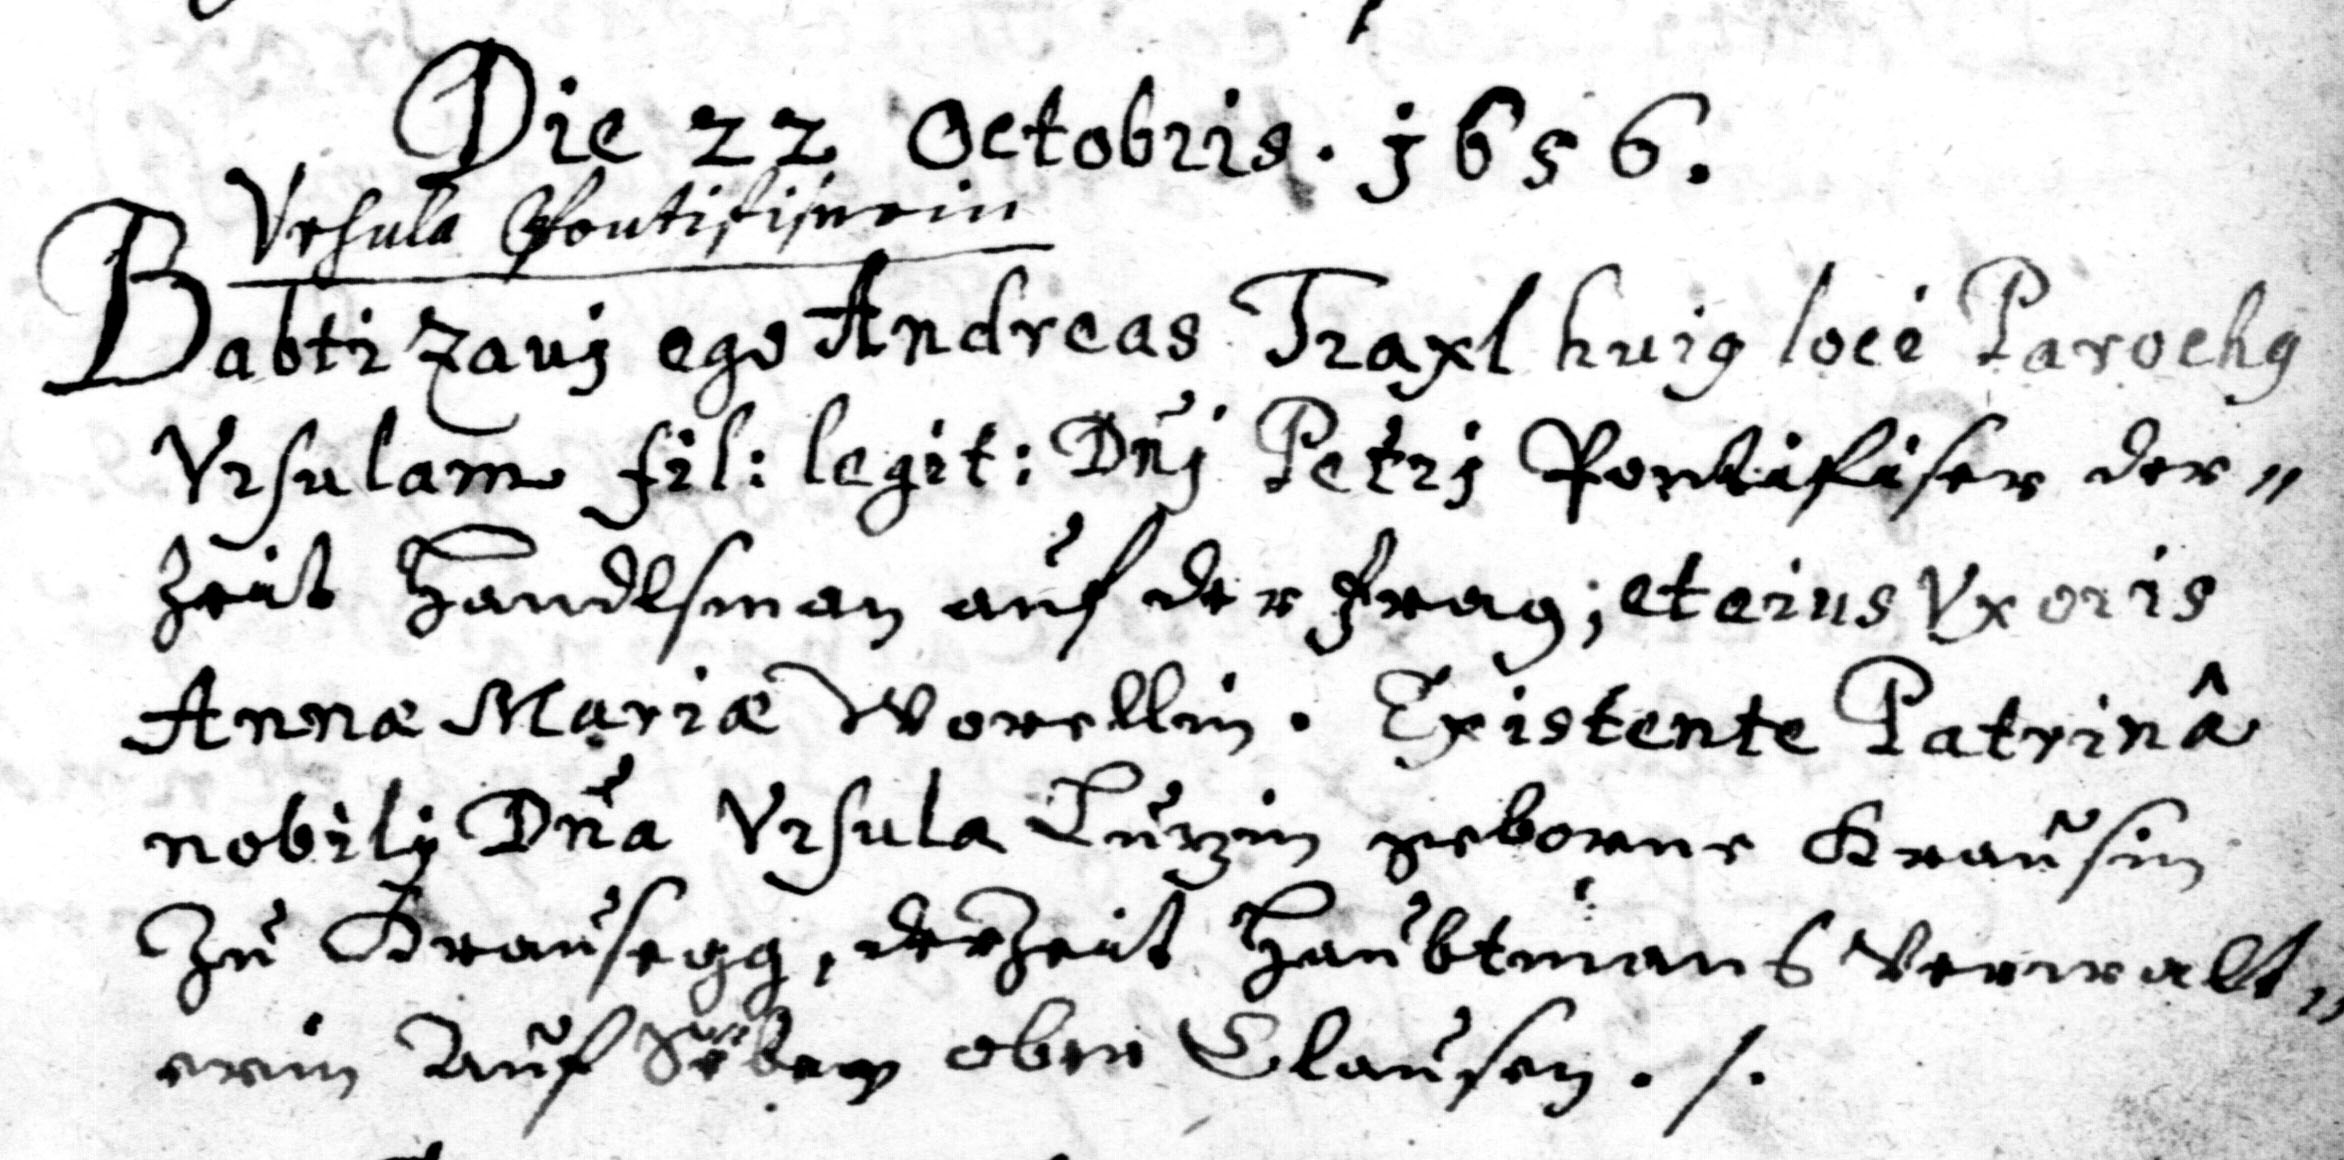 Die 22 Octobris. j656.
Vrsula Pontifiserin
Babtizauj ego Andreas Traxl huig loci Parochg
Vrsulam fil: legit: Dnj Petrj Pontifiser der„
zeit Handlsman auf der Frag; et eius Vxoris
Annæ Mariæ Worellin. Existente Patrinâ
nobilj Dna Vrsula Lurzin geborne Krausin
Zu Krausegg, derzeit Haubtmans Verwalt„
erin Auf Seben ober Clausen. /.